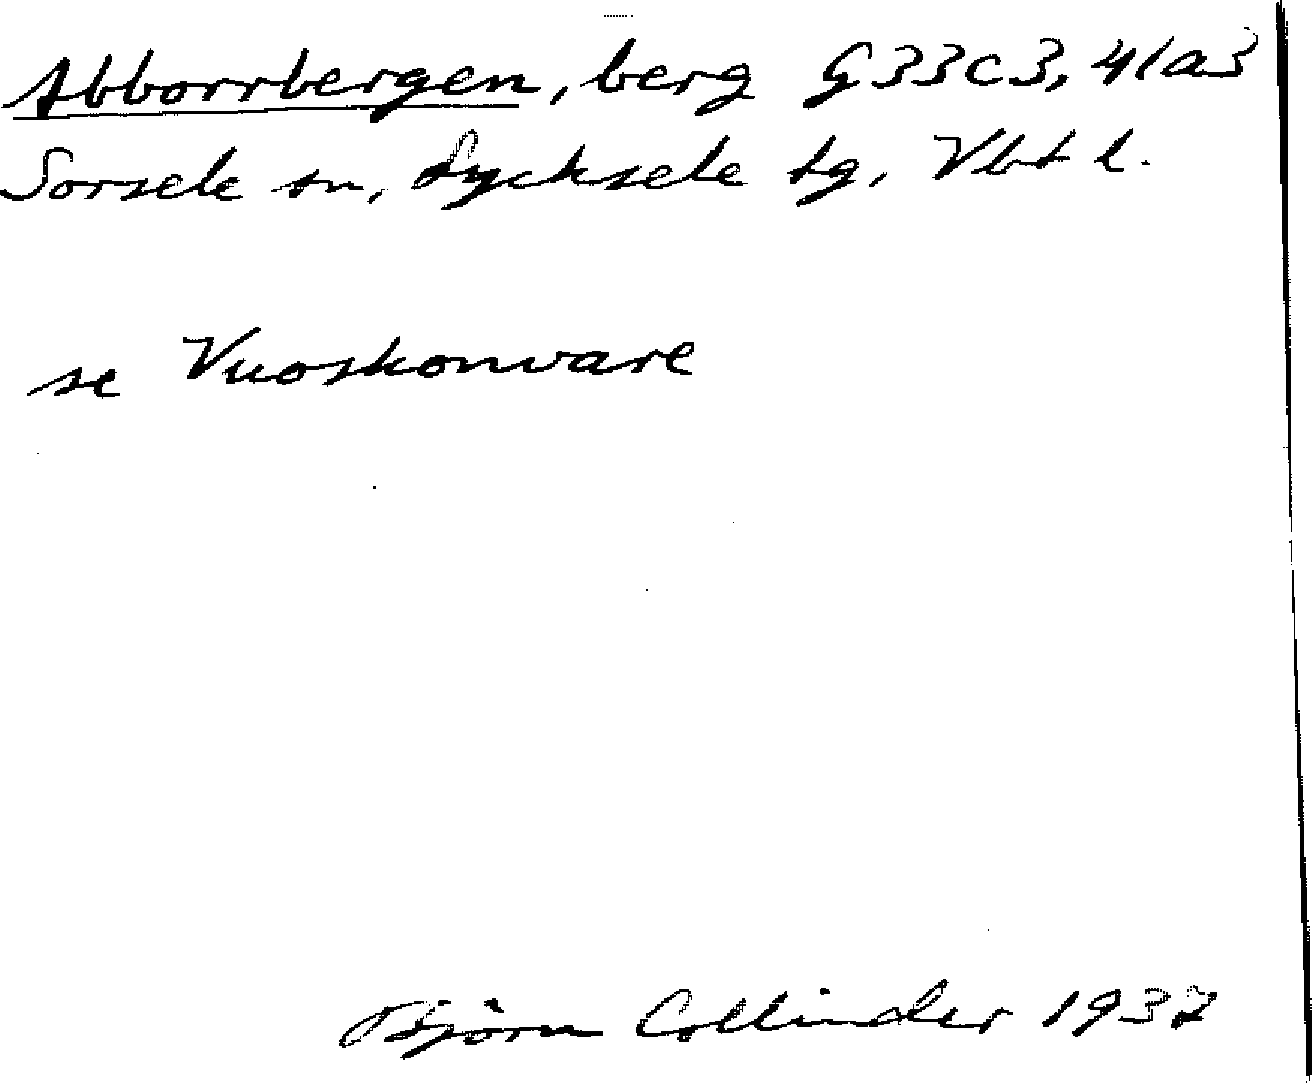 Abborrbergen, berg G33C3, 41a3
Sorsele sn, Lycksele tg, Vbt l.
se Vuoskonvare
Björn Collinder 1937